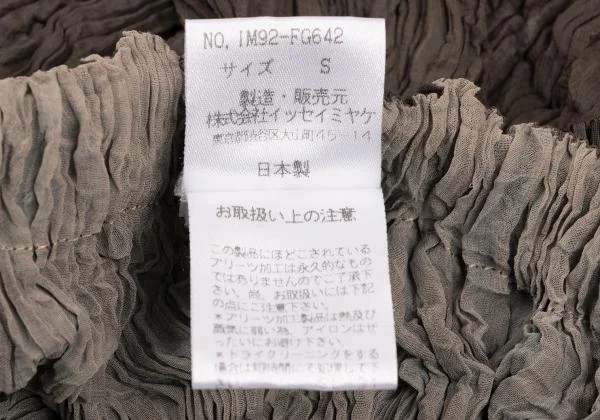 NO. IM92-FG642
サイズ S
製造・販売元
株式会社イッセイミヤケ
東京都渋谷区大山町45-14
日本製
お取扱い上の注意
この製品にほどこされている
プリーツ加工は永久的なもの
ではありませんのでご了承下
さい。尚、お取扱いには下記
の点にご注意下さい。
*プリーツ加工製品は熱及び
蒸気に弱い為、アイロンはぜ
ったいにお避け下さい。
*ドライクリーニングをする
場合は短時間にて処理して下